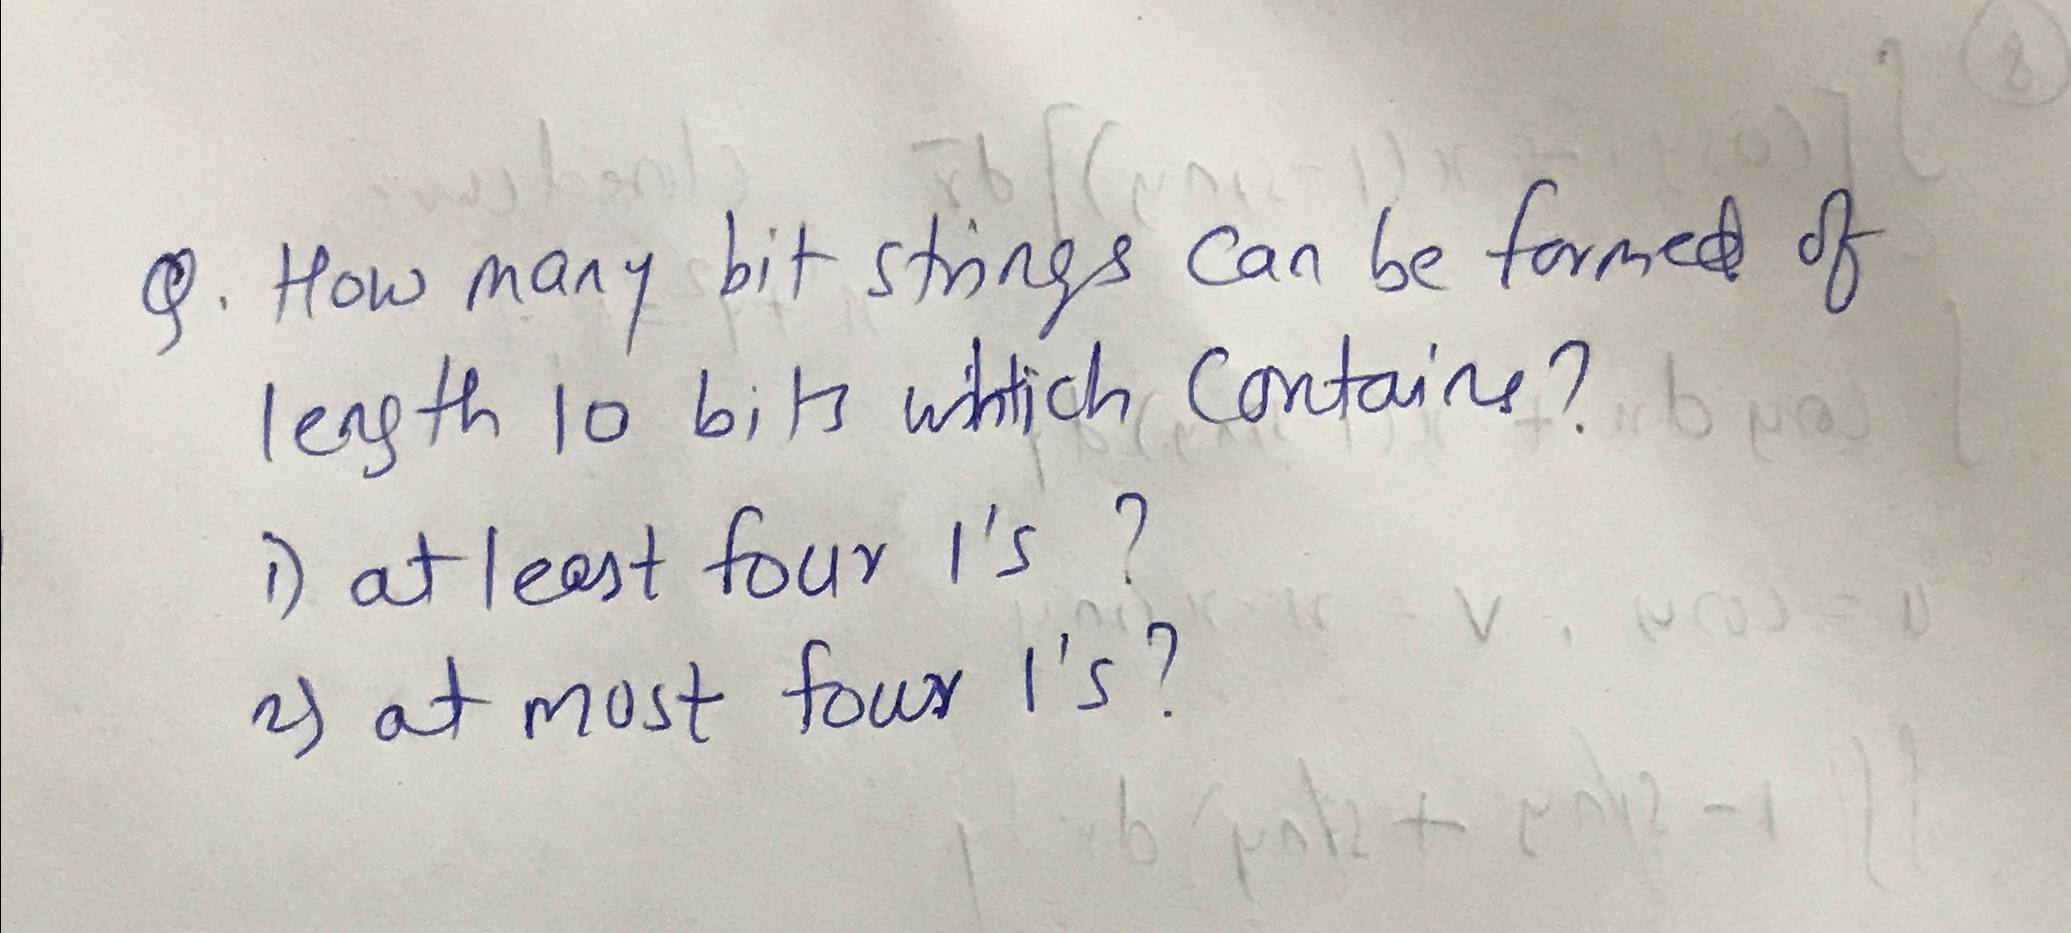 Q. How many bit strings can be formed of
length 10 bits which contains?
i) at least four 1's ?
2) at most four 1's?